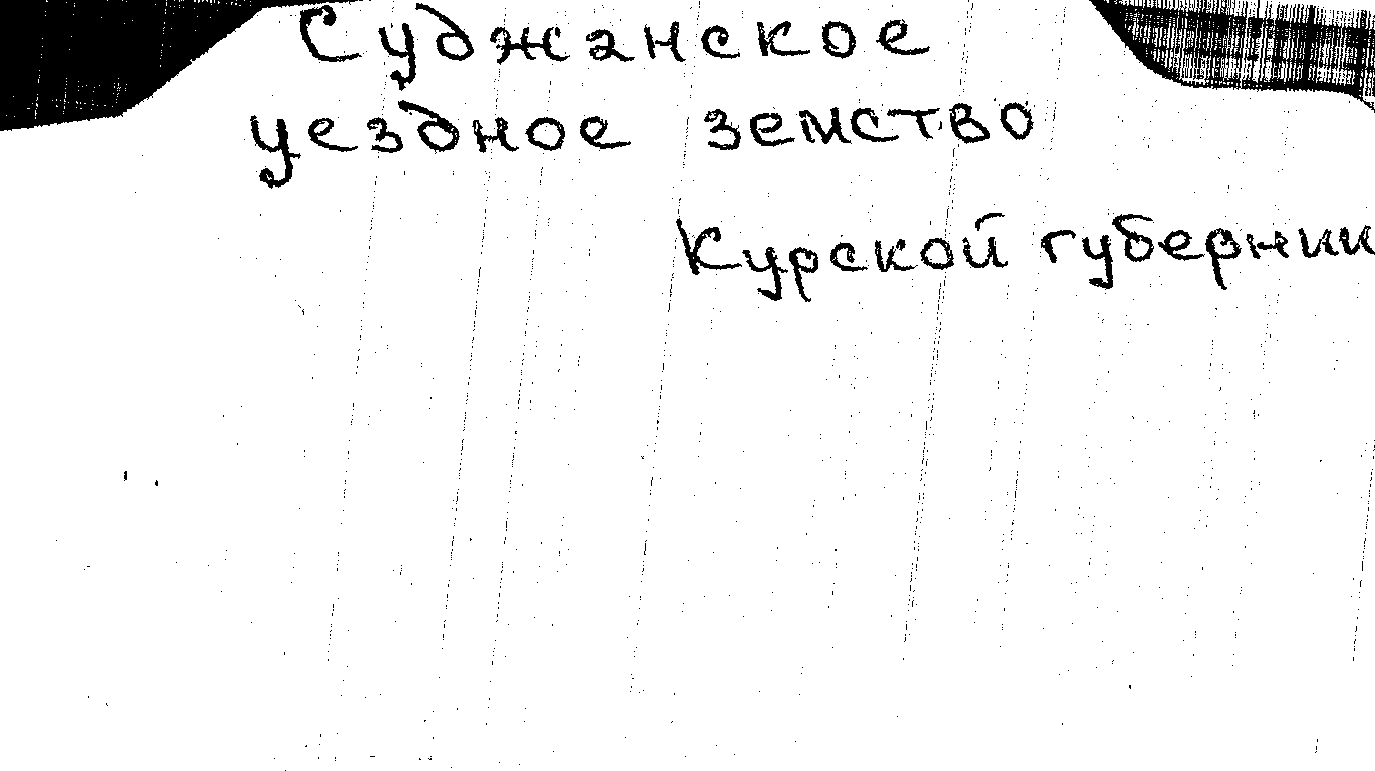 Суджанское
уездное земство
Курской губернии